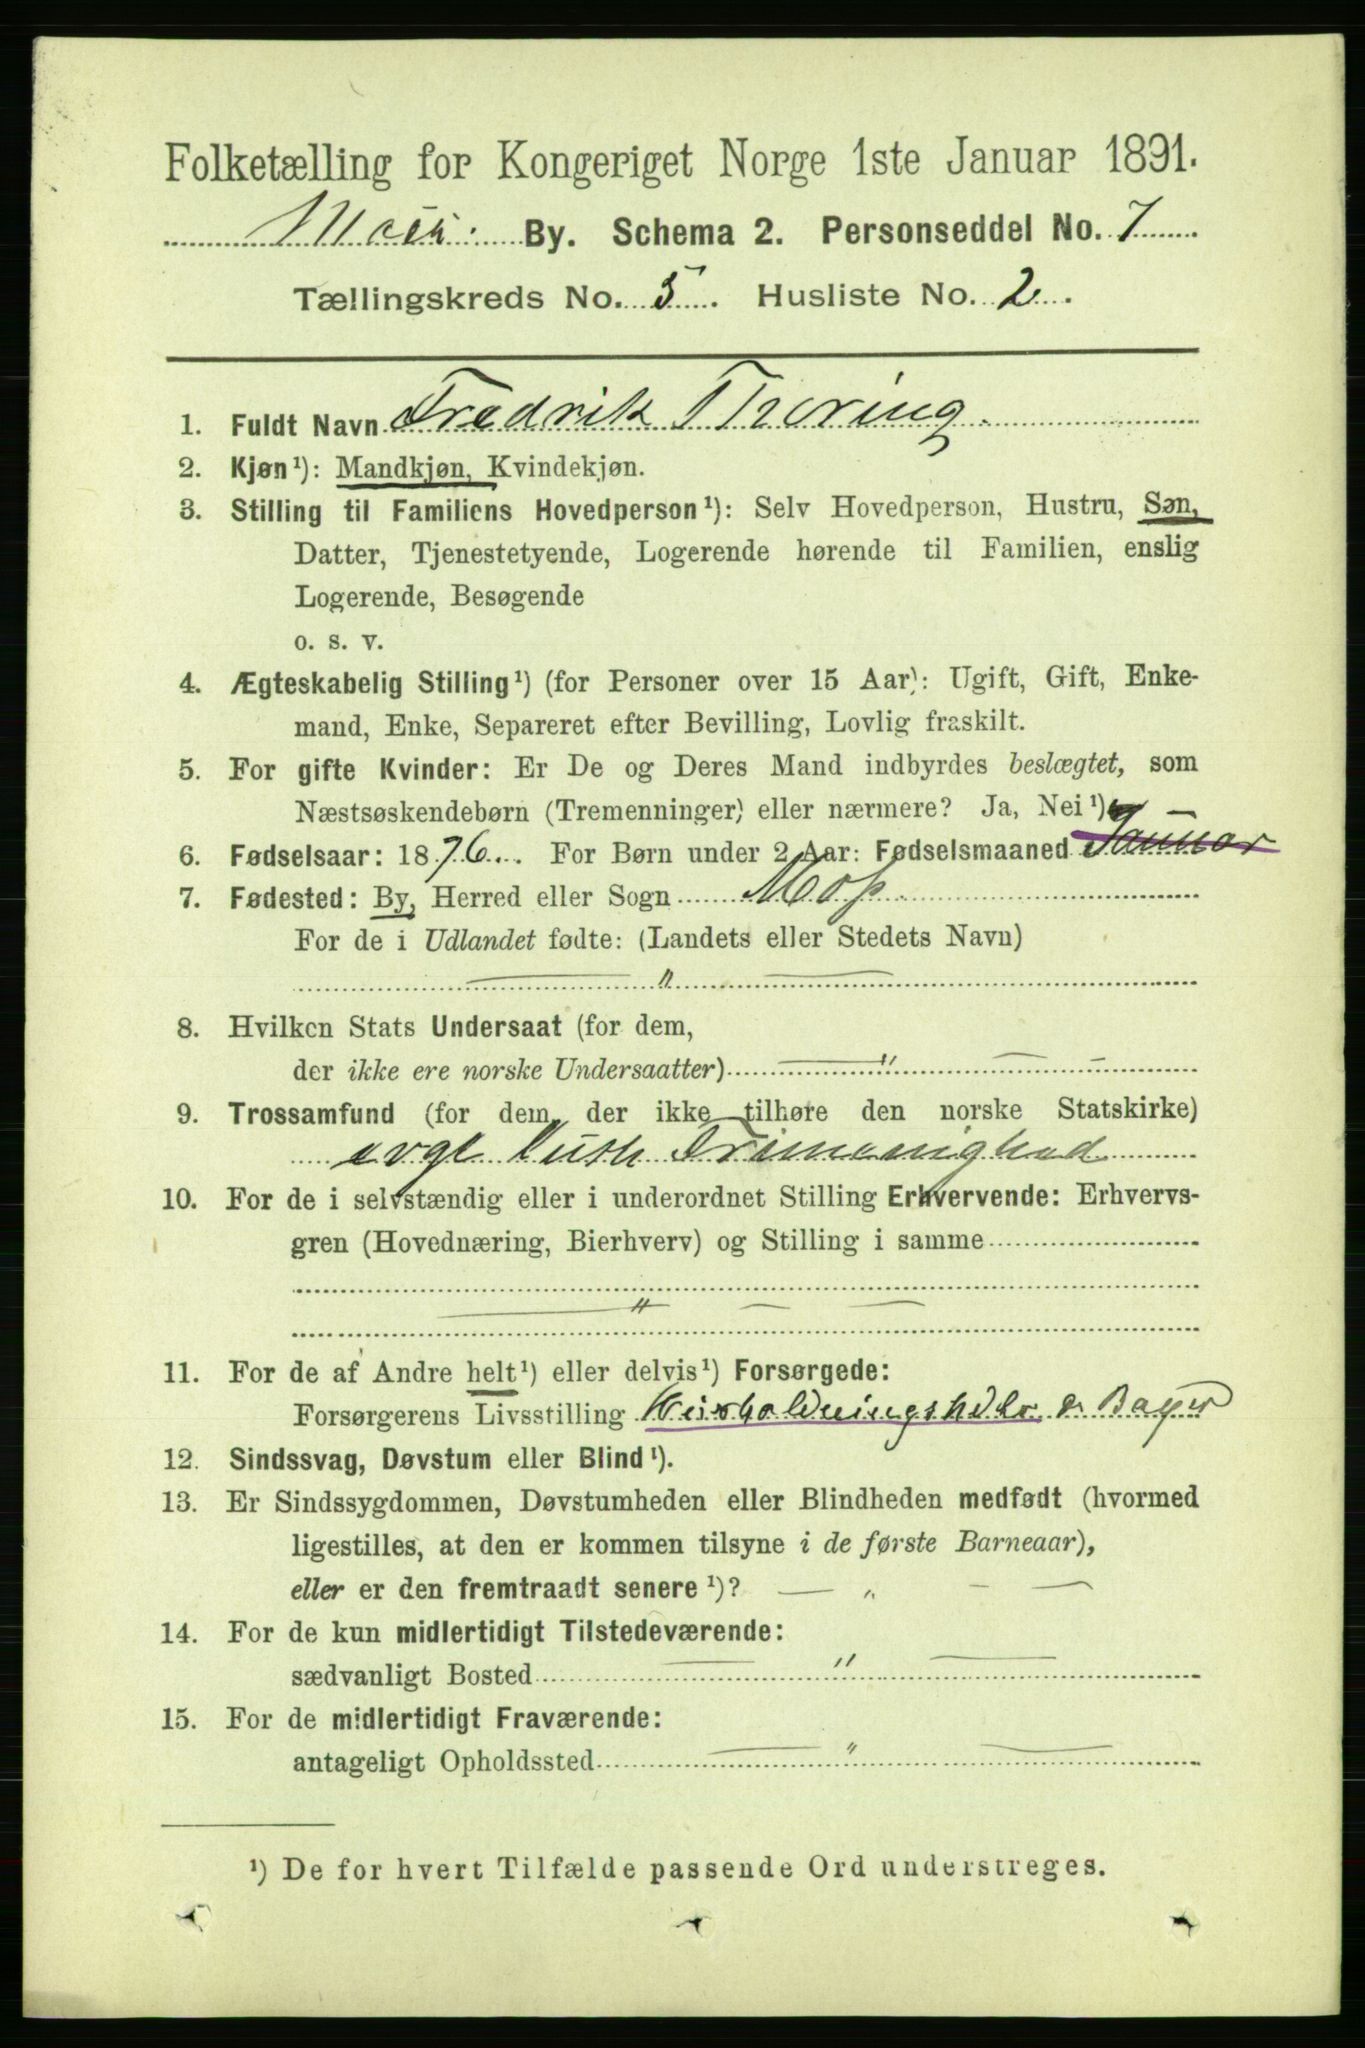 Folketælling for Kongeriget Norge 1ste Januar 1891.
By. Schema 2. Personseddel No. 7
Tællingskreds No. 5. Husliste No. 2.
1. Fuldt Navn Fredrik Thoring
2. Kjøn ¹): Mandkjøn, Kvindekjøn.
3. Stilling til Familiens Hovedperson ¹): Selv Hovedperson, Hustru, Søn,
Datter, Tjenestetyende, Logerende hørende til Familien, enslig
Logerende, Besøgende
o. s. v.
4. Ægteskabelig Stilling ¹) (for Personer over 15 Aar): Ugift, Gift, Enke-
mand, Enke, Separeret efter Bevilling, Lovlig fraskilt.
5. For gifte Kvinder: Er De og Deres Mand indbyrdes beslægtet, som
Næstsøskendebørn (Tremenninger) eller nærmere? Ja, Nei ¹)
6. Fødselsaar: 1876. For Børn under 2 Aar: Fødselsmaaned Januar
7. Fødested: By, Herred eller Sogn Moss
For de i Udlandet fødte: (Landets eller Stedets Navn)
— " —
8. Hvilken Stats Undersaat (for dem,
der ikke ere norske Undersaatter) — " — -
9. Trossamfund (for dem, der ikke tilhøre den norske Statskirke)
evgl luth Frimenighed
10. For de i selvstændig eller i underordnet Stilling Erhvervende: Erhvervs-
gren (Hovednæring, Bierhverv) og Stilling i samme
— " — —
11. For de af Andre helt ¹) eller delvis ¹) Forsørgede:
Forsørgerens Livsstilling & Bager
12. Sindssvag, Døvstum eller Blind ¹).
13. Er Sindssygdommen, Døvstumheden eller Blindheden medfødt (hvormed
ligestilles, at den er kommen tilsyne i de første Barneaar),
eller er den fremtraadt senere ¹)? — " - —
14. For de kun midlertidigt Tilstedeværende:
sædvanligt Bosted — " —
15. For de midlertidigt Fraværende:
antageligt Opholdssted — " —
¹) De for hvert Tilfælde passende Ord understreges.